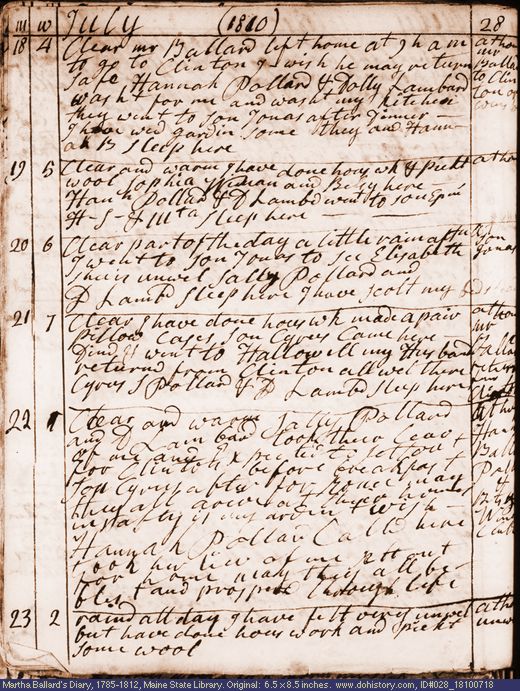 m w July (1810) 28
18 4 Clear mr Ballard left home at 9 h am
to go to Clinton I wish he may return
safe Hannah Pollard & Dolly Lambard
washt for me and washt my kitchen
they went to Son Jonas after Dinner
I have wed gardin some they and Hann
ah B Sleep here
at home
mr
Ballard
to Clin
ton
19 5 Clear and warm I have done hous wk & pickt
wool Sophia and Betsy here
Hanh Pollard & D Lambd went to son
H - S - & Sleep here
at home
20 6 Clear part of the day a little rain
I went to Son Jonas to see Elisabeth
Shee is unwel Sally Pollard and
D Lambd Sleep here I have scolt my bedsteads
Son
Jonas
21 7 Clear I have done hous wk made a pair
Pillow Cases Son Cyrus Came here
Dind & went to Hallowell my Husband
returnd from Clinton all wel there
Cyrus S Pollard & D Lambd Sleep here
at home
mr
Ballard
return
from
Clinton
22 1 Clear and warm Sally Pollard
and D Lambard took their leav
of me and Expected to set out
for Clinton before breakfast
Son Cyrus after
they all arive at their homes
in safty is my ardint wish
Hannah Pollard Calld here
took her leav of me sett out
for home may they all be
blest and prosper through life
at home
23 2 raind all day I have felt very unwel
but have done hous work and pickt
some wool
at home
unwel
Martha Ballard's Diary, 1785-1812, Maine State Library. Original: 6.5 x 8.5 inches. www.dohistory.com, ID#028_18100718